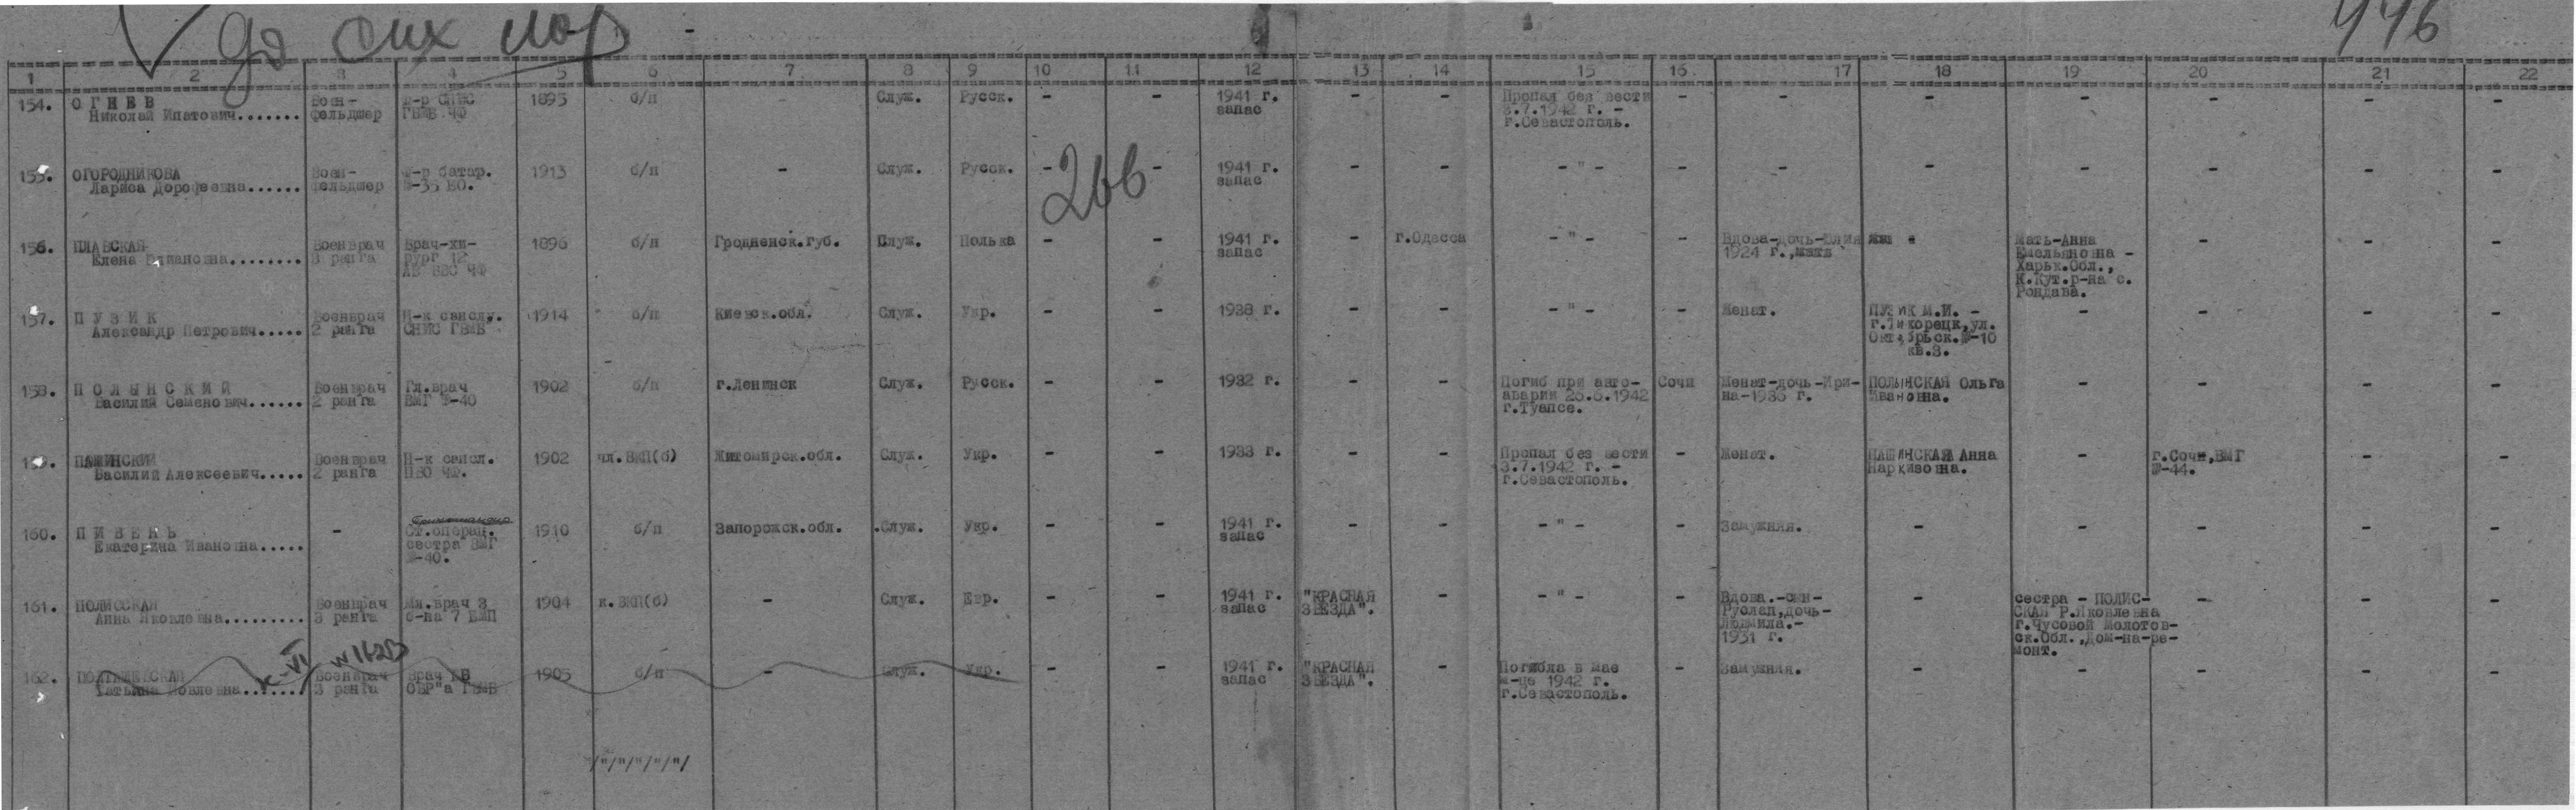 до сих пор
446
1 2 3 4 5 6 7 8 9 10 11 12 13 14 15 16 17 18 19 20 21 22
154. О Г Н Е В Воен- СНИС 1895 б/п - Служ. Русск. - - 1941 г. - - Пропал без вести - - - - - - -
Николай Ипатович....... фельдшер ГВМБ ЧФ запас 3.7.1942 г. -
г.Севастополь.
266
155. ОГОРОДНИКОВА Воен- Ф-р батар. 1913 б/п - Служ. Русск. - - 1941 г. - - - " - - - - - - - -
Лариса Дорофеевна...... фельдшер №-35 БО. запас
156. ПЛАВСКАЯ Военврач Врач-хи- 1896 б/п Гродненск.губ. Служ. Полька - - 1941 г. - г.Одесса - " - - Вдова-дочь-Юлия - Мать-Анна - - -
Елена Юлиановна........ 3 ранга рург 12 запас 1924 г.,мать Емельяновна -
АБ ВВС ЧФ Харьк.Обл.,
К.Кут.р-на с.
Рондава.
157. П У З И К Военврач Н-к санслу. 1914 б/п Киевск.обл. Служ. Укр. - - 1938 г. - - - " - - Женат. ПУЗИК М.И. - - - - -
Александр Петрович..... 2 ранга СНИС ГВМБ г.Тихорецк,ул.
Октябрьск.№-10
кв.8.
158. П О Л Ы Н С К И Й Военврач Гл.врач 1902 б/п г.Ленинск Служ. Русск. - - 1932 г. - - Погиб при авто- Сочи Женат-дочь-Ири- ПОЛЫНСКАЯ Ольга - - - -
Василий Семенович...... 2 ранга ВМГ №-40 аварии 26.6.1942 на-1936 г. Ивановна.
г.Туапсе.
ПАШИНСКИЙ Военврач Н-к сансл. 1902 чл.ВКП(б) Житомирск.обл. Служ. Укр. - - 1933 г. - - Пропал без вести - Женат. ПАШИНСКАЯ Анна - г.Сочи,ВМГ - -
Василий Алексеевич..... 2 ранга ПВО ЧФ. 3.7.1942 г. - Наркизовна. №-44.
г.Севастополь.
160. П И В Е Н Ь - Ст.операц. 1910 б/п Запорожск.обл. .Служ. Укр. - - 1941 г. - - - " - - Замужняя. - - - - -
Екатерина Ивановна..... сестра ВМГ запас
№-40.
161. ПОЛИССКАЯ Военврач Мл.врач 3 1904 к.ВКП(б) - Служ. Евр. - - 1941 г. "КРАСНАЯ - - " - - Вдова.-сын- - сестра - ПОЛИС- - - -
Анна Яковлевна......... 3 ранга б-на 7 БМП запас ЗВЕЗДА". Руслан,дочь- СКАЯ Р.Яковлевна
Людмила.- г.Чусовой Молотов-
1931 г. ск.Обл.,Дом-на-ре-
монт.
162. Военврач Врач 1905 б/п - Служ. Укр. 1941 г. "КРАСНАЯ - Погибла в мае - Замужняя. - - - - -
Татьяна 3 ранга ОВР"а ГВМБ запас ЗВЕЗДА". м-це 1942 г.
г.Севастополь.
/"/"/"/"/"/